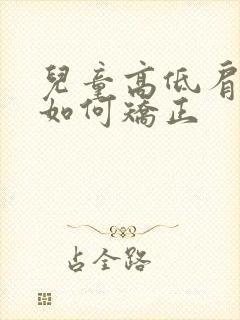 兒童高低肩
如何矯正
占全路